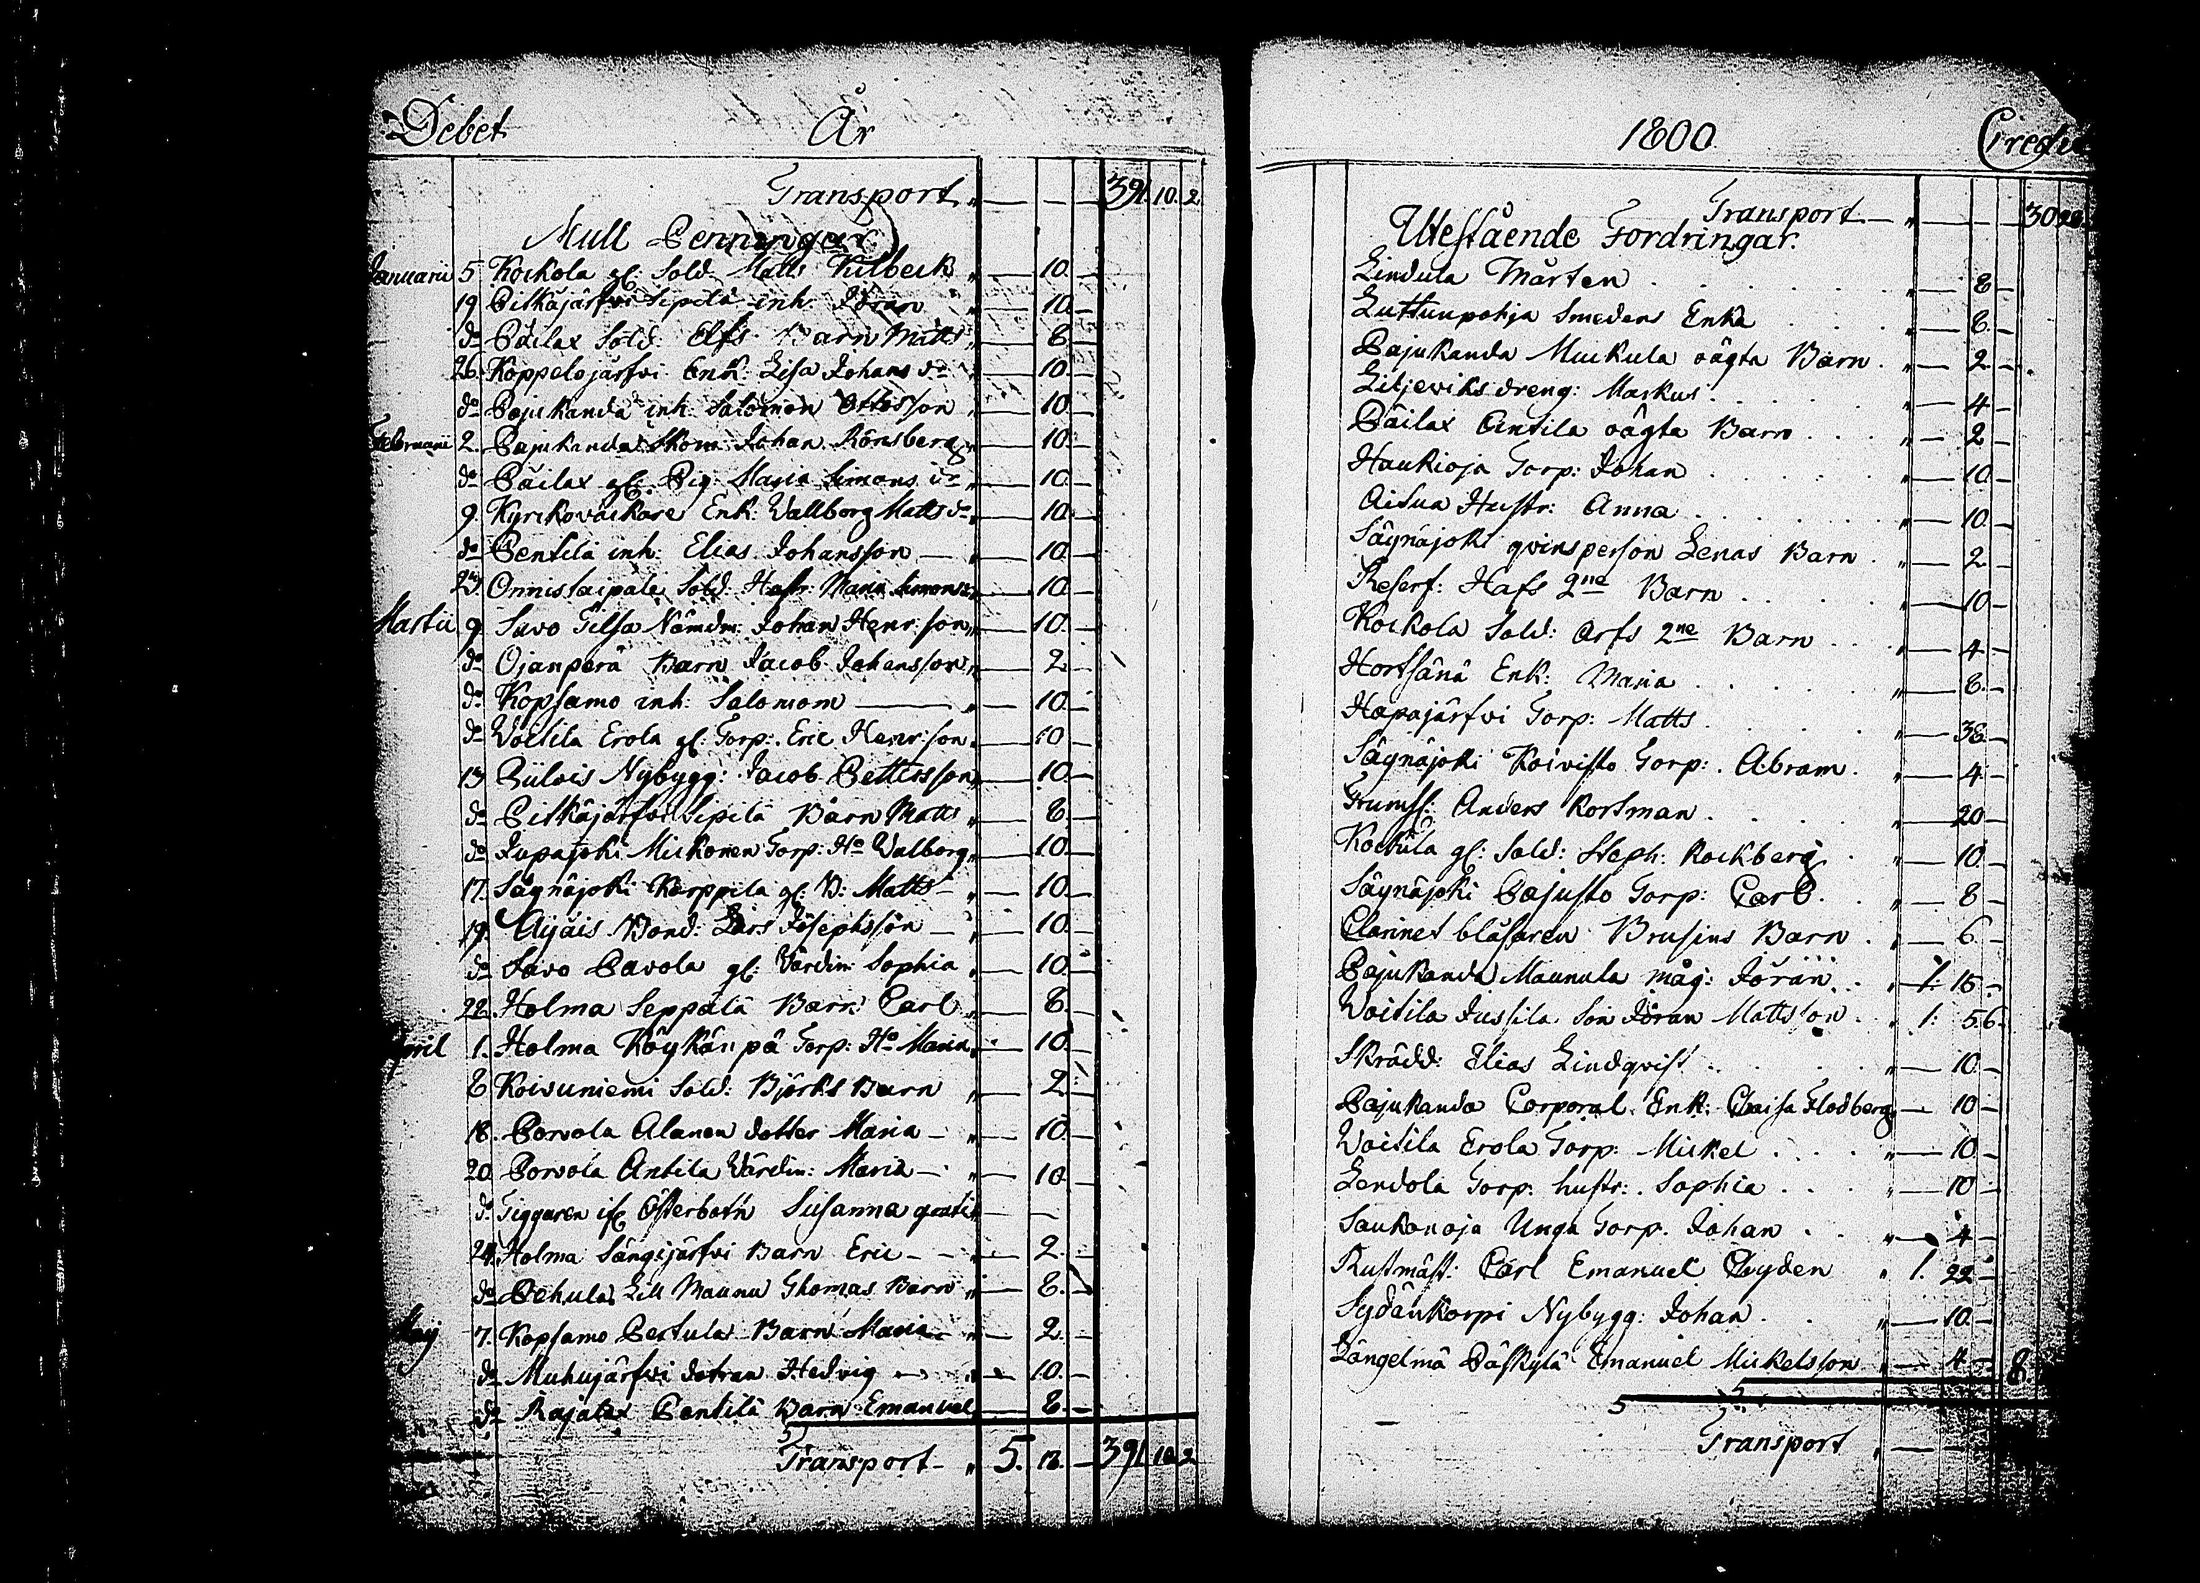 Debet År
Transport „ — — — 391. 10. 2
Mull Penningar
Januarii 5 Kockola gl: Sold. Matts Kilbeck „ — 10. —
19 Pitkäjärfvi Sipilä inh: Jöran „ — 10. —
do Päilax Sold: Elfs Barn Matts „ — 8 —
26. Koppelojärfvi Enk: Lisa Johans dr „ — 10. —
do Pajukanda inh: Salomon Ottosson — 10 —
Februarii 2. Pajukanda Skom: Johan Rönsberg „ — 10. —
do Päilax gl: Pig: Maria Simons dr „ — 10. —
9. Kyrckowäckare Enk: Wallborg Matts dr „ — 10. —
do Pentilä inh: Elias Johansson — „ — 10. —
23. Onnistaipale Sold: Hustr: Maria Simonsdr „ — 10. —
Martii 9 Savo Tilsa Nämdm: Johan Henr: son „ — 10. —
do Ojanperä Barn Jacob Johansson „ — 2. —
do Kopsamo inh: Salomom — „ — 10. —
do Woitila Erola gl: Torp: Eric Henr: son „ — 10 —
13 Nybygg: Jacob Pettersson „ — 10. —
do Pitkäjärfvi Sipilä Barn Matts „ — 8. —
do Jupajoki Mickonen Torp: Ho Walborg „ — 10. —
17. Säynäjoki Karppila gl: B: Matts — „ — 10. —
19. Äijäis Bond: Lars Josephsson — „ — 10. —
do Savo Pavola gl: Värdin: Sophia „ — 10. —
22 Holma Seppälä Barn Carl „ — 8. —
April 1. Holma Köykänpä Torp: Ho Maria „ — 10. —
8 Koivuniemi Sold: Björks Barn „ — 2. —
18. Porvola Alanen dotter Maria — „ — 10. —
20 Porvola Antila Värdin: Maria — „ — 10. —
do Tiggaren Österbotn Susanna gratis — —
24. Holma Sängijärfvi Barn Eric — „ — 2. —
do Pehula Lill Maunu Thomas Barn „ — 8. —
Maij 7. Kopsamo Pertula Barn Maria „ — 2. —
do Muhujärfvi dotran Hedvig — „ — 10. —
do Rajalax Pentilä Barn Emanuel — 8. —
Transport — „ 5. 18. — 391 10 2
1800 Credit
Transport — „ — — — 30
Utestående Fordringar.
Lindula Mårten . . . „ — 8 —
Luttunpohja Smeden Enka . . . „ — 8. —
Pajukanda Muckula oägta Barn . „ — 2 —
Liljeviks dreng: Markus . . . „ — 4 —
Päilax Antila oägta Barn . . . „ — 2 —
Haukioja Torp: Johan . . . „ — 10. —
Hustr: Anna . . . „ — 10. —
Säynäjoki qvinsperson Lenas Barn . „ — 2 —
Reserf: Hafs 2ne Barn . . . „ — 10 —
Kockola Sold: Arfs 2ne Barn . . „ — 4 —
Enk: Maria . . . „ — 8. —
Hapajärfvi Torp: Matts . . . „ — 38. —
Säynäjoki Koivisto Torp: Abram . „ — 4 —
Trumsl: Anders Kortman . . . — 20 —
gl: Sold: Steph: Rockberg . „ — 10. —
Säynäjoki Pajusto Torp: Carl . . „ — 8 —
Clarinet blåsaren Brusins Barn . „ — 6. —
Pajukanda Maunula måg: Jöran . . „ 1. 16. —
Woitila Jussila Son Jöran Mattsson . „ 1: 5. 6.
Skrädd: Elias Lindqvist . . . „ — 10. —
Pajukanda Corporal: Enk: Caisa Flodberg „ — 10 —
Woitila Erola Torp: Mickel . . . „ — 10 —
Lendola Torp: hustr: Sophia . . . „ — 10 —
Saukonoja Unga Torp. Johan . . „ — 4 —
Rustmäst: Carl Emanuel Clyden „ 1. 22 —
Sydänkorpi Nybygg: Johan . . „ — 10. —
Längelmä Päskylä Emanuel Mickelsson „ — 4 — 8.
Transport „ — —